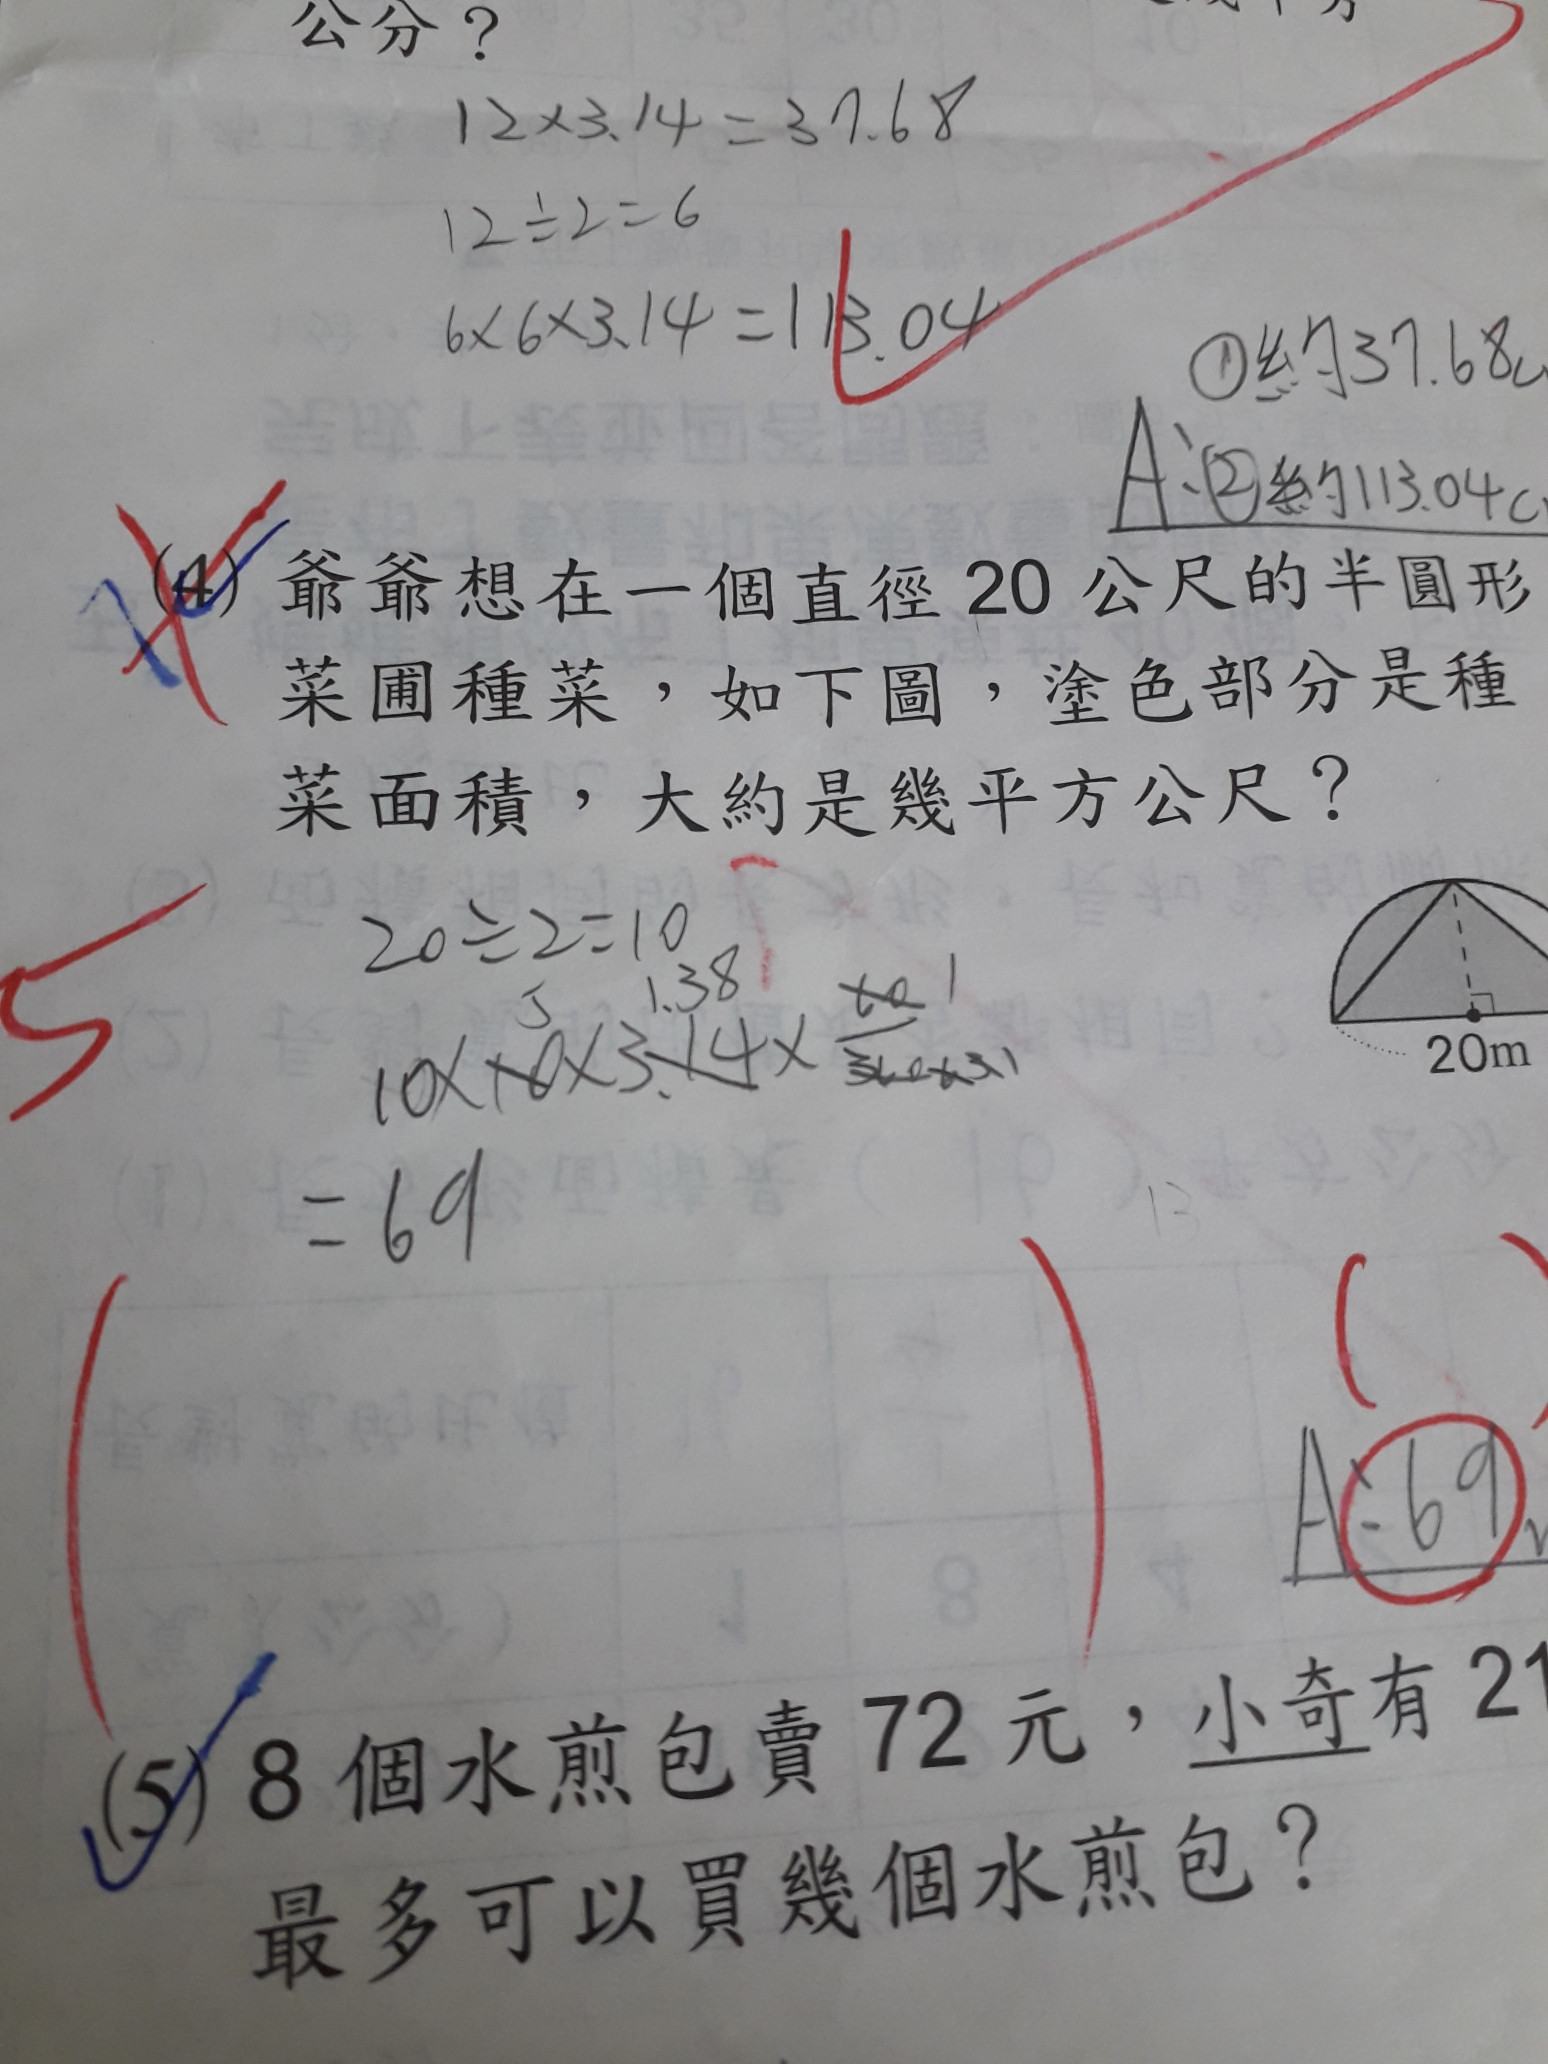 公分？
12×3.14=37.68
12÷2=6
6×6×3.14=113.04
①約37.68
A:②約113.04
(4) 爺爺想在一個直徑 20 公尺的半圓形
菜圃種菜，如下圖，塗色部分是種
菜面積，大約是幾平方公尺？
20÷2=10
5 1.38 1
10×10×3.14×
=69
20m
5
A:69
(5) 8 個水煎包賣 72 元，小奇有 21
最多可以買幾個水煎包？